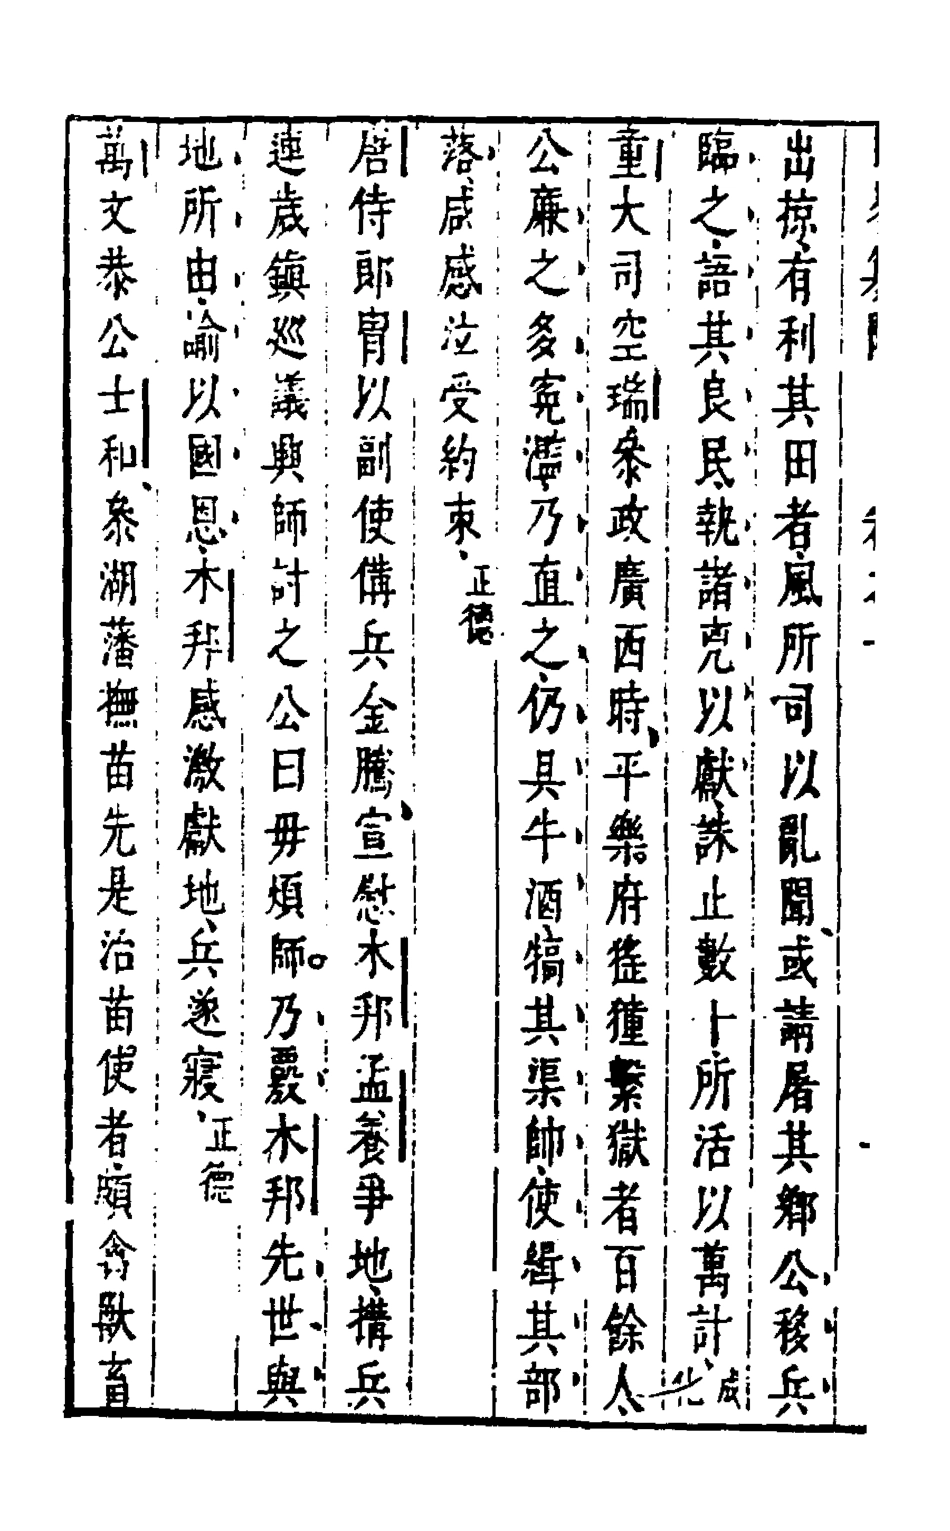 出掠有利其田者風所司以亂聞或請屠其鄉公移兵
臨之語其良民執諸兇以獻誅止數十所活以萬計成化
童大司空瑞叅政廣西時平樂府猺獞繫獄者百餘人
公廉之多寃濫乃直之仍具牛酒犒其渠帥使緝其部
落咸感泣受約束正德
唐侍郎胄以副使備兵金騰宣慰木邦孟養爭地搆兵
連歲鎮巡議興師討之公曰毋煩師乃覈木邦先世與
地所由諭以國恩木邦感激獻地兵遂寢正德
萬文恭公士和叅湖藩撫苗先是治苗使者頗禽獸畜